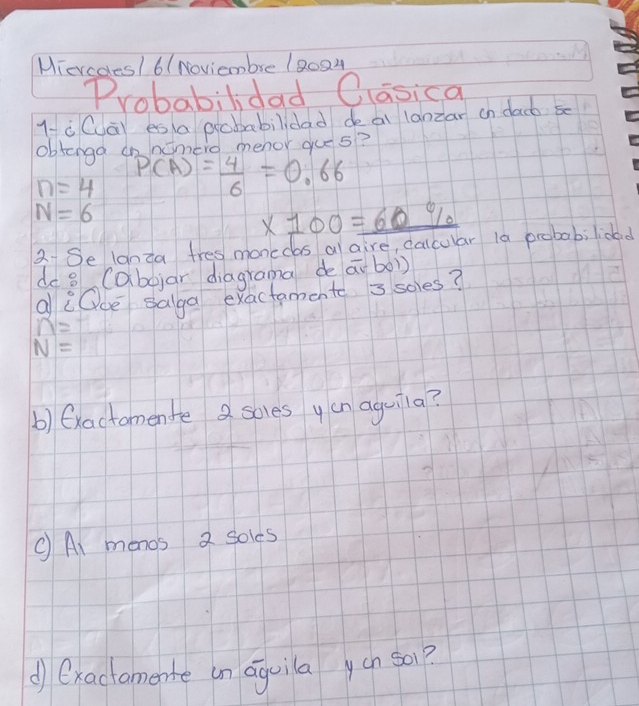 Miercoles / 6 / Noviembre / 2024
Probabilidad Clásica
1- ¿Cuál es la probabilidad de al lanzar un dado se
obtenga un número menor que 5?
P(A) = 4/6 = 0.66
n = 4
N = 6
x 100 = 60 %
2- Se lanza tres monedas al aire, calcular la probabilidad
de: (abajar diagrama de árbol)
a) ¿Qué salga exactamente 3 soles?
n =
N =
b) Exactamente 2 soles y un aguila?
c) Al menos 2 soles
d) Exactamente un águila y un sol?